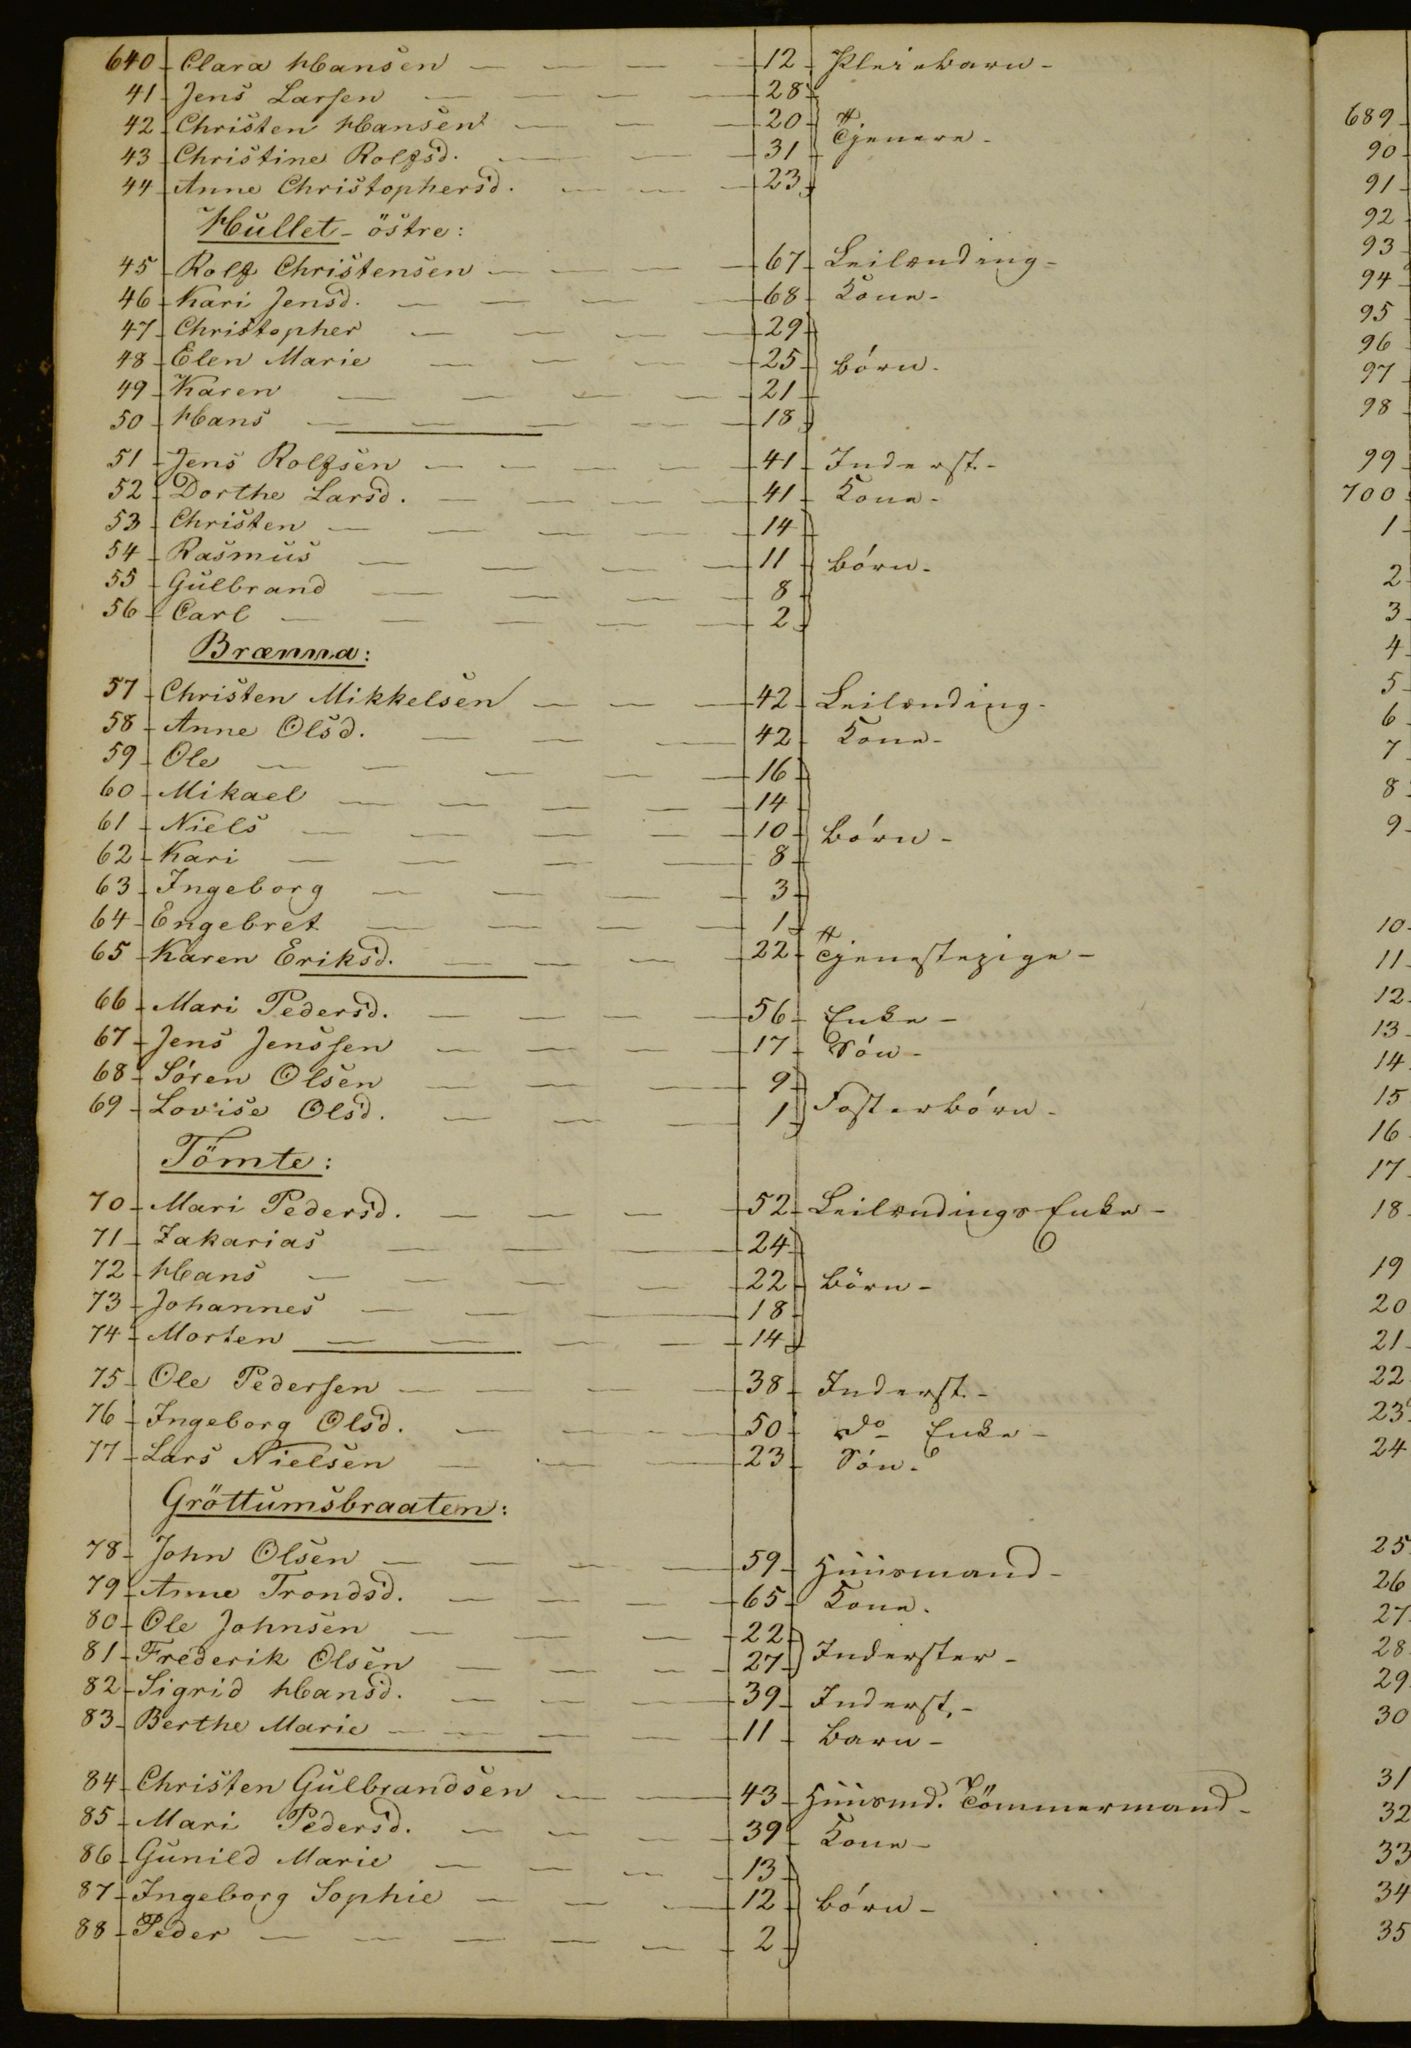 640 Clara Hansen 12 Pleiebarn
41 Jens Larsen 28
42 Christen Hansen 20 Tjenere
43 Christine Rolfsd. 31
44 Anne Christophersd. 23
Hullet östre:
45 Rolf Christensen 67 Leilænding
46 Kari Jensd. 68 Kone
47 Christopher 29
48 Elen Marie 25 Børn
49 Karen 21
50 Hans 18
51 Jens Rolfsen 41 Inderst
52 Dorthe Larsd. 41 Kone
53 Christen 14
54 Rasmus 11 Børn
55 Gulbrand 8
56 Carl 2
Brænna:
57 Christen Mikkelsen 42 Leilænding
58 Anne Olsd. 42 Kone
59 Ole 16
60 Mikael 14
61 Niels 10 Børn
62 Kari 8
63 Ingeborg 3
64 Engebret 1
65 Karen Eriksd. 22 Tjenestepige
66 Mari Pedersd. 56 Enke
67 Jens Jenssen 17 Søn
68 Søren Olsen 9
69 Lovise Olsd. 1 Fosterbørn
Tömte:
70 Mari Pedersd. 52 Leilændings Enke
71 Zakarias 24
72 Hans 22 Børn
73 Johannes 18
74 Morten 14
75 Ole Pedersen 38 Inderst
76 Ingeborg Olsd. 50 do Enke
77 Lars Nielsen 23 Søn
Gröttumsbraaten:
78 John Olsen 59 Huusmand
79 Anne Trondsd. 65 Kone
80 Ole Johnsen 22
81 Frederik Olsen 27 Inderster
82 Sigrid Hansd. 39 Inderst.
83 Berthe Marie 11 Barn
84 Christen Gulbrandsen 43 Huusmd. Tömmermand
85 Mari Pedersd. 39 Kone
86 Gunild Marie 13
87 Ingeborg Sophie 12 Børn
88 Peder 2
689
90
91
92
93
94
95
96
97
98
99
700
1
2
3
4
5
6
7
8
9
10
11
12
13
14
15
16
17
18
19
20
21
22
23
24
25
26
27
28
29
30
31
32
33
34
35